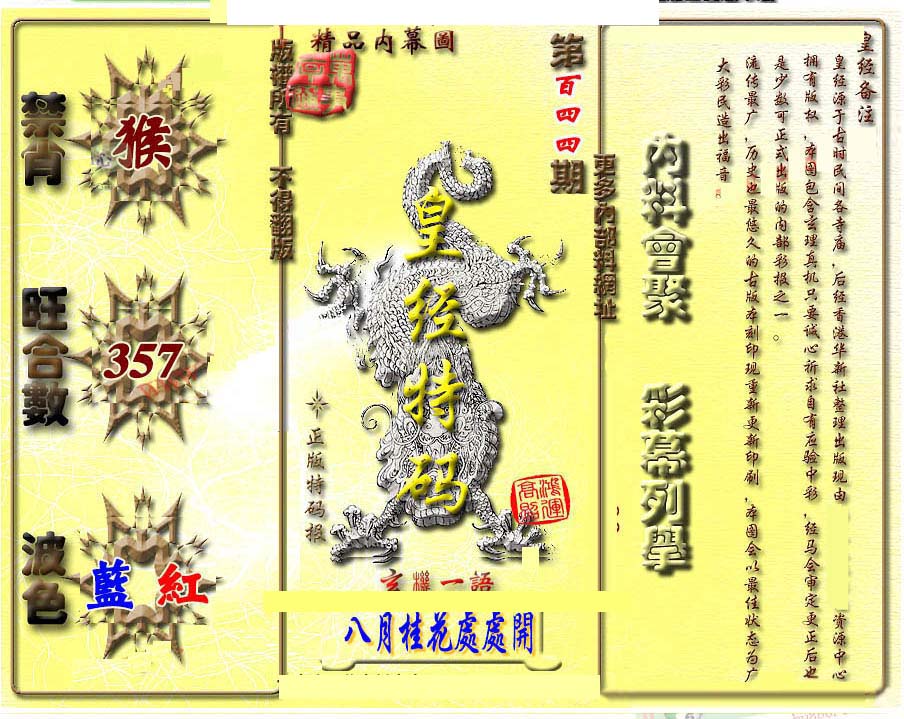 精品內幕圖
版權所有 不得翻版
第百四四期
更多內部料網址
禁肖
猴
旺合數
357
波色
藍 紅
皇经特码
正版特码报
鴻運高照
玄機一語
八月桂花處處開
內料會聚
彩幕列舉
皇经备注
皇经源于古时民间各寺庙，后经香港华新社整理出版现由
资源中心
拥有版权，本图包含玄理真机只要诚心祈求自有应验中彩，经马会审定更正后也
是少数可正式出版的内部彩报之一。
流传最广，历史也最悠久的古版本刻印现重新更新印刷，本图会以最佳状态为广
大彩民造出福音